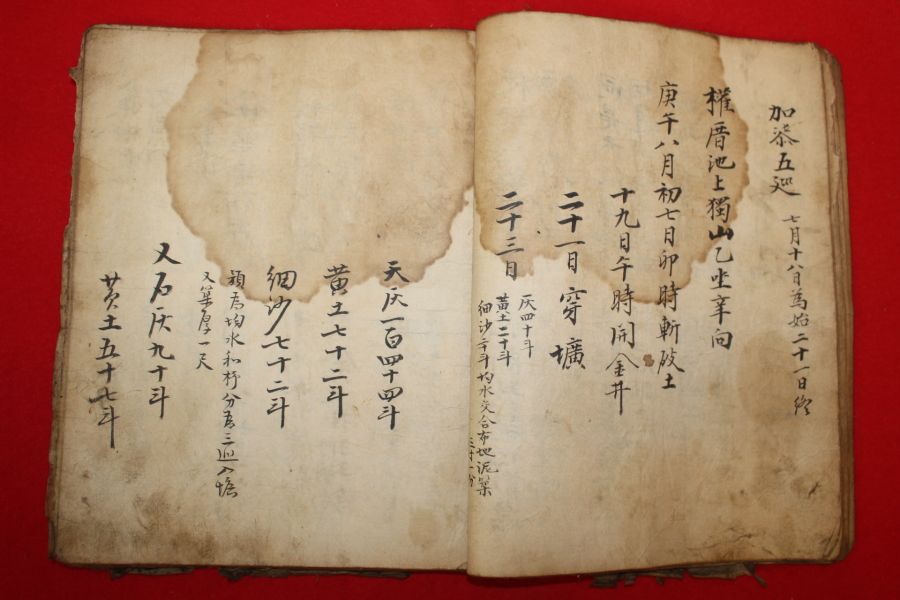 加漆五巡 七月十八日為始二十一日終
権厝池上獨山乙坐辛向
庚午八月初七日卯時斬破土
十九日午時開金井
二十一日穿壙
二十三日
灰四十斗
黃土二十斗
細沙二十斗均水交合布地泥築
天灰一百四十四斗
黃土七十二斗
細沙七十二斗
均水和杵分為三巡入塘
又築厚一尺
又石灰九十斗
黃土五十七斗